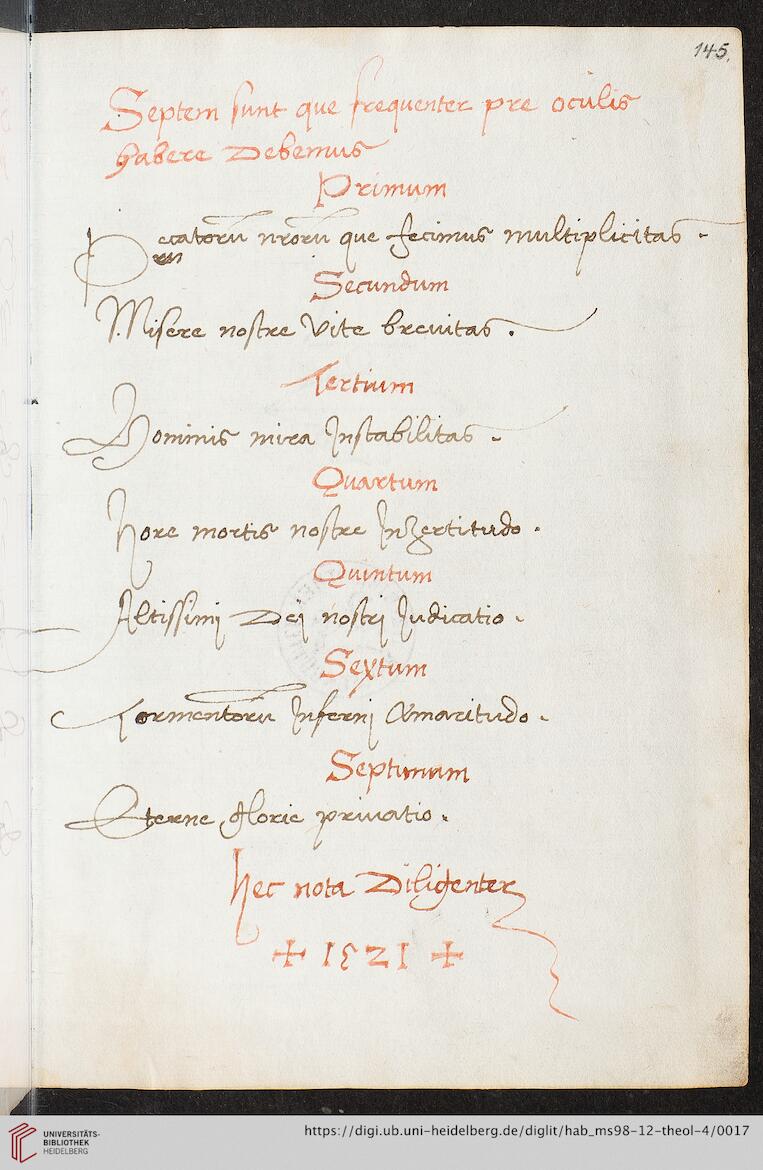 145.
Septem sunt que frequenter pre oculis
habere Debemus
Primum
Pecatorū nrorū que fecimus multiplicitas .
Secundum
Misere nostre vite breuitas .
Tertium
Hominis mira Instabilitas .
Quartum
Hore mortis nostre Inzertitudo .
Quintum
Altissimj Dej nostrj Judicatio .
Sextum
Tormentorū Infernj Amaritudo .
Septimum
Eterne glorie priuatio .
hec nota Diligenter
✠ 1521 ✠
UNIVERSITÄTS-
BIBLIOTHEK
HEIDELBERG
https://digi.ub.uni-heidelberg.de/diglit/hab_ms98-12-theol-4/0017